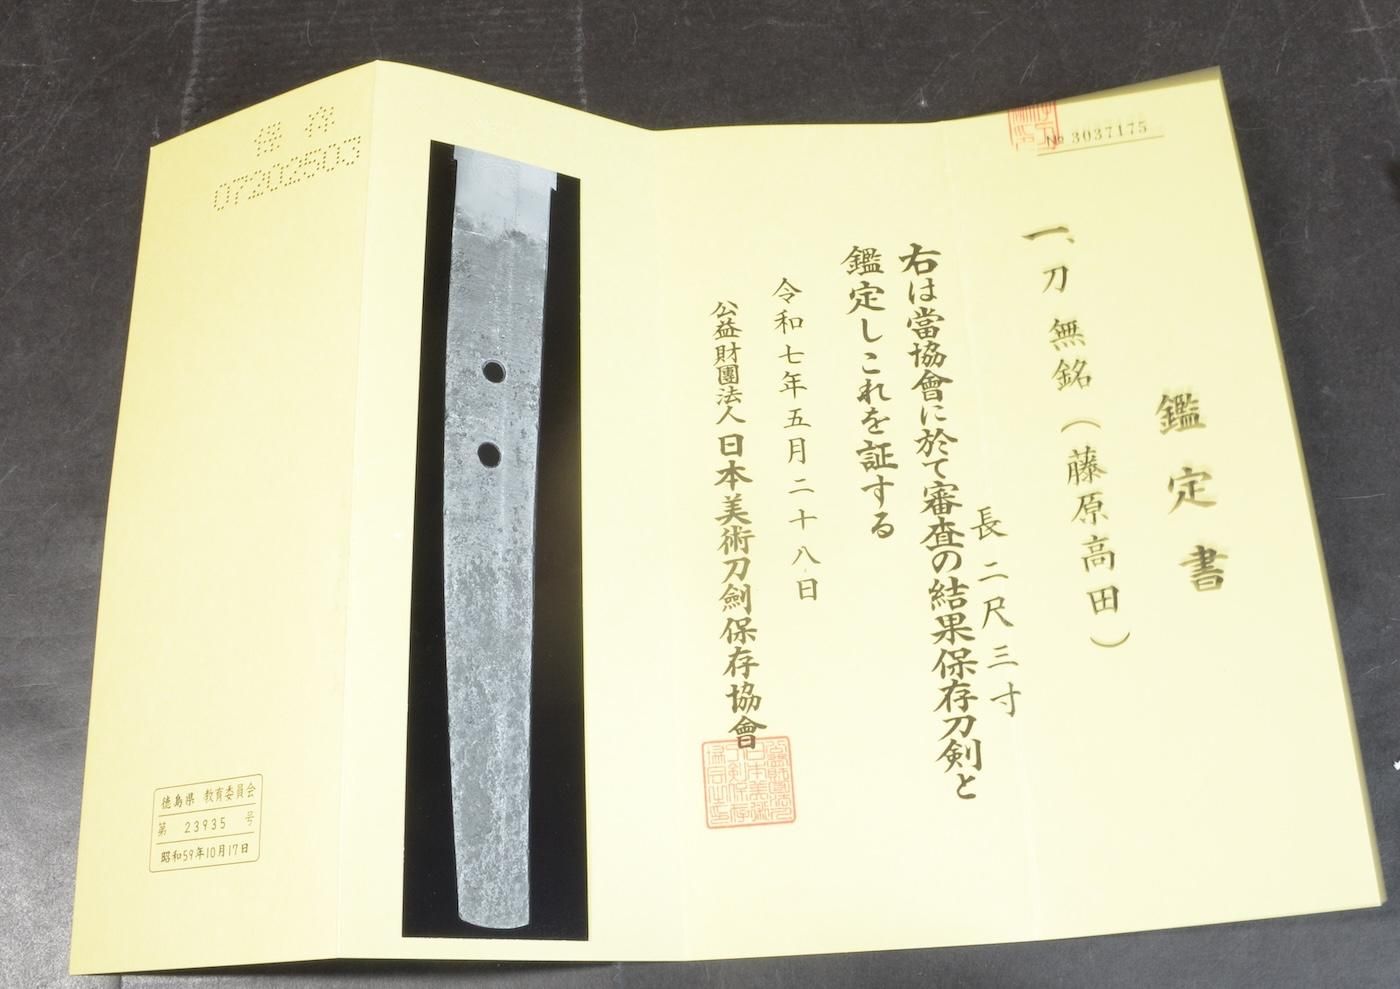 № 3037175
鑑定書
一、刀 無銘(藤原高田)
長 二尺三寸
右は當協會に於て審査の結果保存刀剣と
鑑定しこれを証する
令和七年五月二十八日
公益財團法人 日本美術刀劍保存協會
保存
07202503
徳島県 教育委員会
第 23935 号
昭和59年10月17日